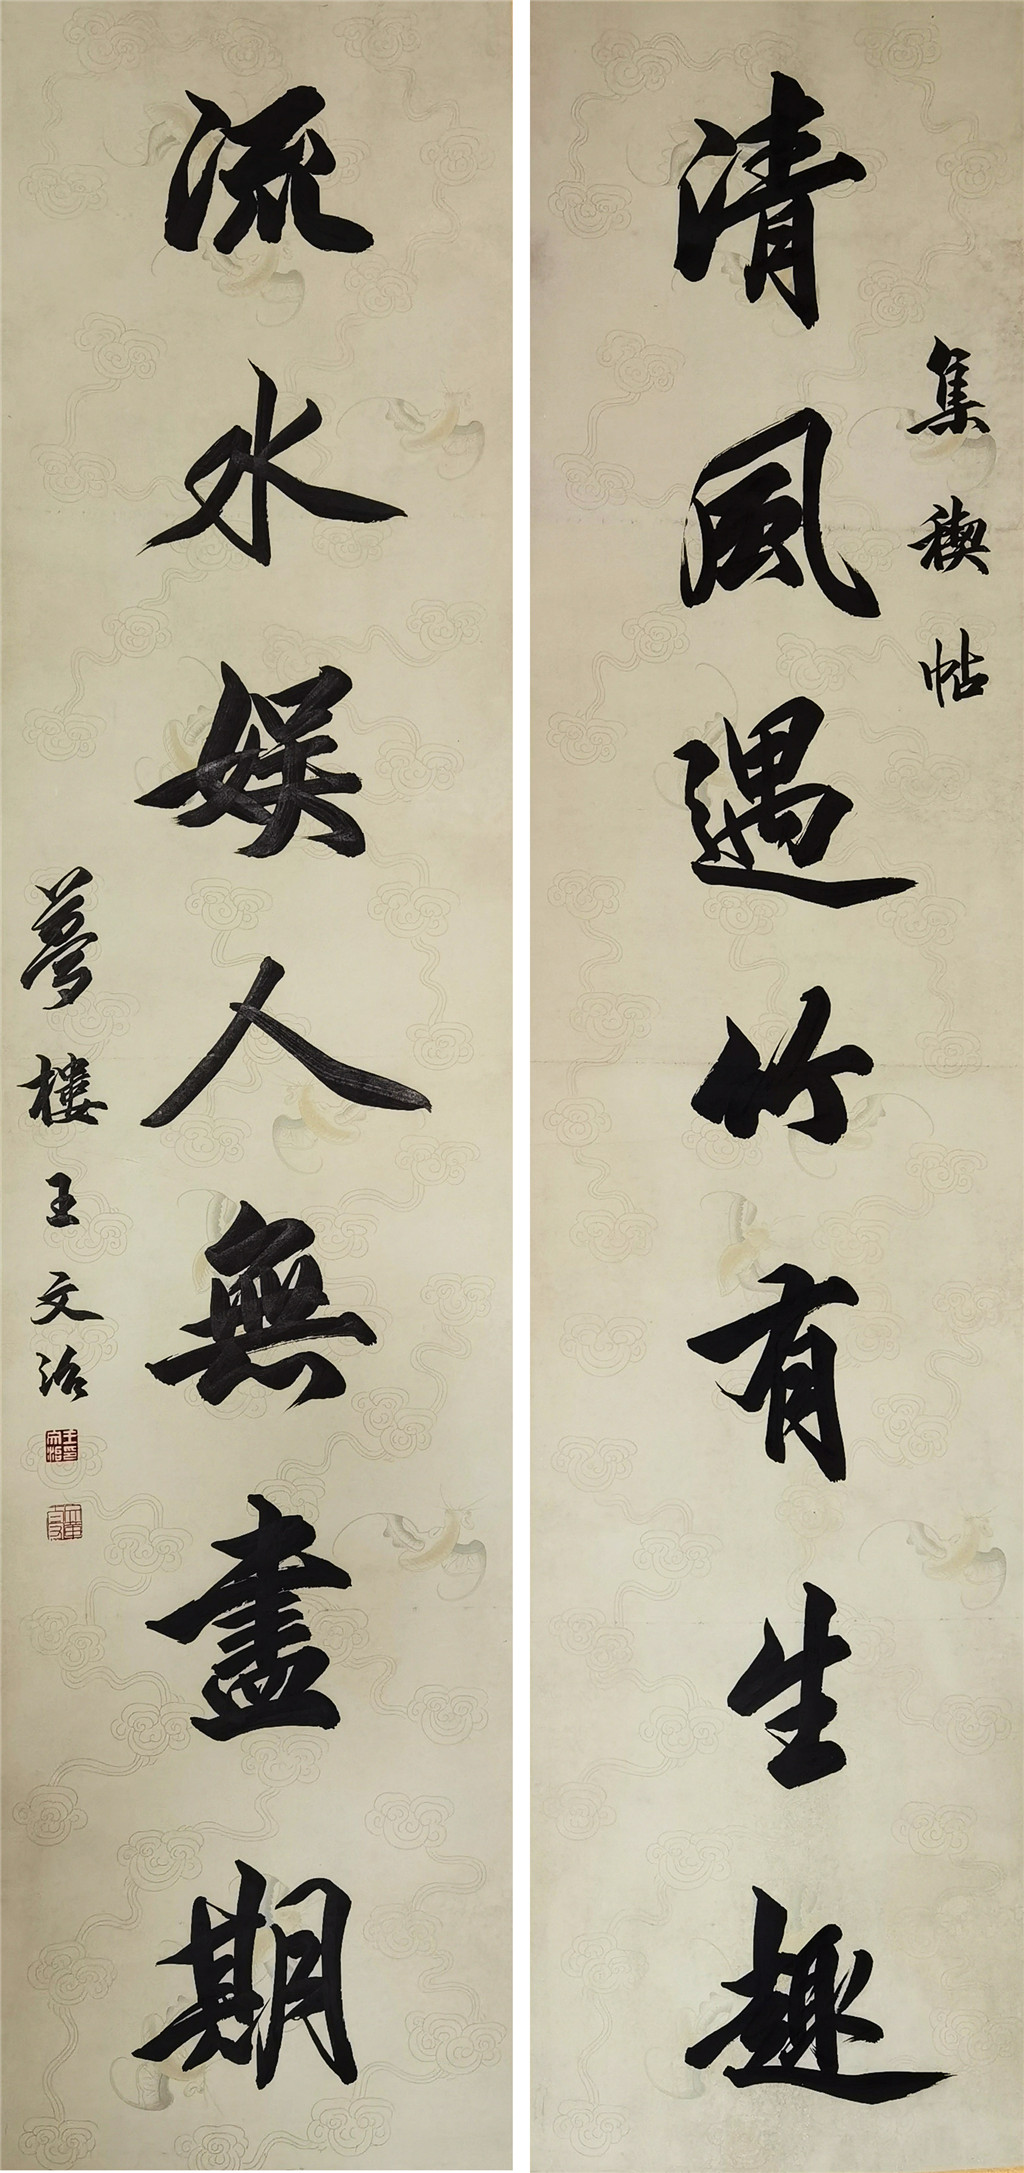 集禊帖
清風遇竹有生趣
流水娱人無盡期
夢樓王文治